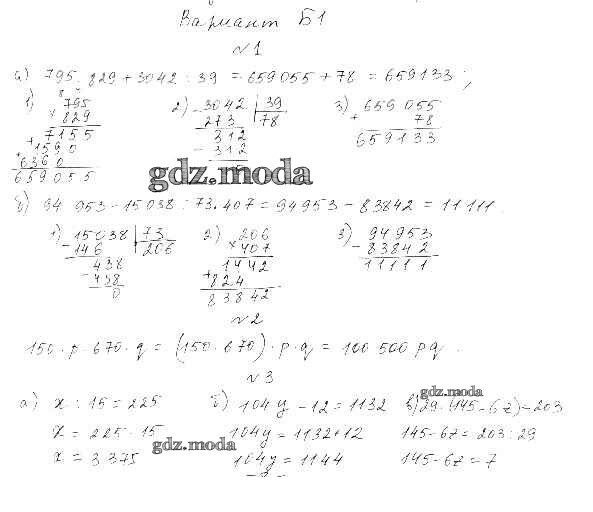 Вариант Б1
№1
а) 795 · 829 + 3042 : 39 = 659055 + 78 = 659133;
1) 795
× 829
7155
+ 1590
+ 6360
659055
2) 3042 | 39
- 273 | 78
312
- 312
3) 659055
+ 78
659133
gdz.moda
б) 94953 - 15038 : 73 · 407 = 94953 - 83842 = 11111.
1) 15038 | 73
- 146 | 206
438
- 438
0
2) 206
× 407
1442
+ 824
83842
3) 94953
- 83842
11111
№2
150 · p · 670 · q = (150 · 670) · p · q = 100500 pq.
№3
gdz.moda
а) x : 15 = 225
x = 225 · 15
x = 3375
б) 104y - 12 = 1132
104y = 1132 + 12
104y = 1144
в) 29 · (145 - 6z) = 203
145 - 6z = 203 : 29
145 - 6z = 7
gdz.moda